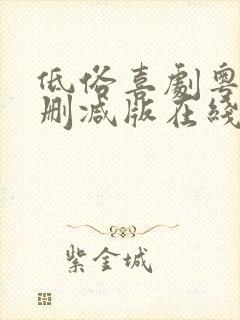 低俗喜劇粵
删減版在綫
紫金城